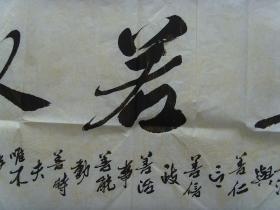 若
與
善仁
言
善信
政
善治
事
善能
動
善時
夫
唯不